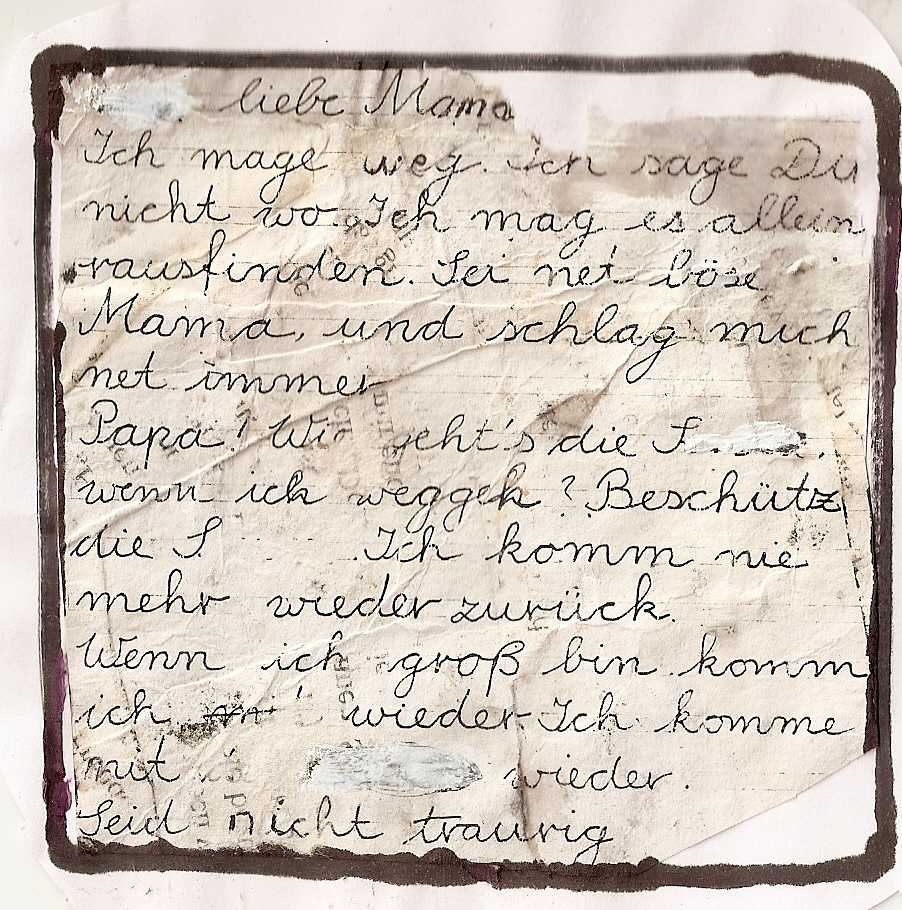 liebe Mama
Ich mage weg. Ich sage Du
nicht wo. Ich mag es allein
rausfinden. Sei net böse
Mama, und schlag mich
net immer
Papa! Wie geht's die S
wenn ich weggeh? Beschütz
die S. Ich komm nie
mehr wieder zurück.
Wenn ich groß bin komm
ich wieder Ich komme
mit wieder.
Seid nicht traurig